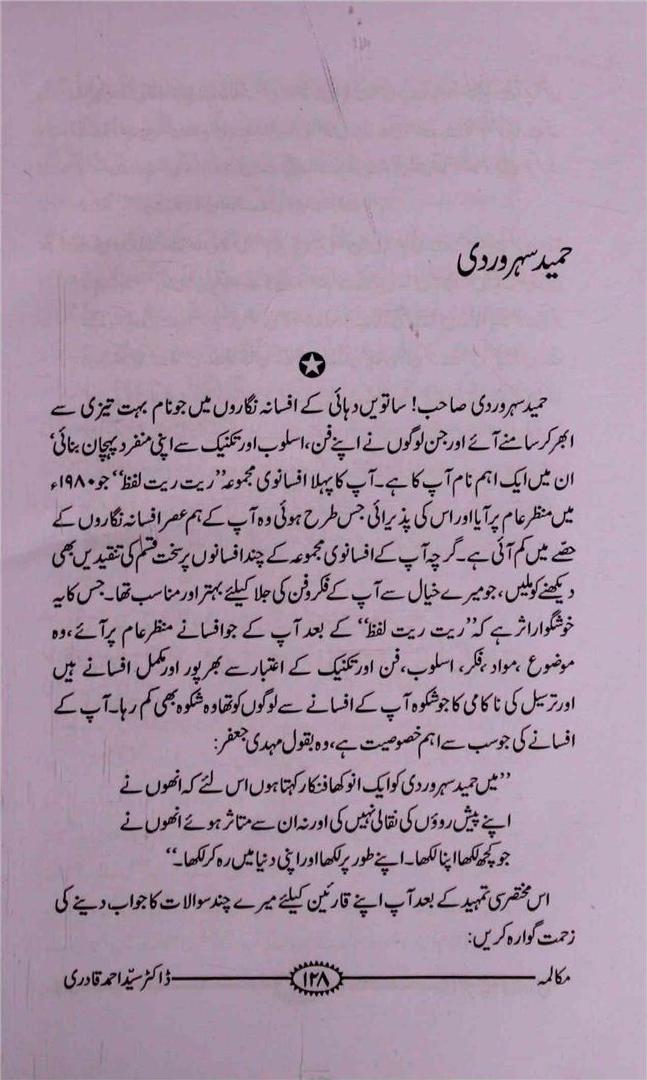 حمید سہروردی
حمید سہروردی صاحب! ساتویں دہائی کے افسانہ نگاروں میں جو نام بہت تیزی سے
ابھر کر سامنے آئے اور جن لوگوں نے اپنے فن، اسلوب اور تکنیک سے اپنی منفرد پہچان بنائی‘
ان میں ایک اہم نام آپ کا ہے۔ آپ کا پہلا افسانوی مجموعہ ”ریت ریت لفظ“ جو ۱۹۸۰ء
میں منظر عام پر آیا اور اس کی پذیرائی جس طرح ہوئی وہ آپ کے ہم عصر افسانہ نگاروں کے
حصّے میں کم آئی ہے۔ گرچہ آپ کے افسانوی مجموعہ کے چند افسانوں پر سخت قسم کی تنقیدیں بھی
دیکھنے کو ملیں، جو میرے خیال سے آپ کے فکر و فن کی جلا کیلئے بہتر اور مناسب تھا۔ جس کا یہ
خوشگوار اثر ہے کہ ”ریت ریت لفظ“ کے بعد آپ کے جو افسانے منظر عام پر آئے، وہ
موضوع ، مواد، فکر، اسلوب، فن اور تکنیک کے اعتبار سے بھرپور اور مکمل افسانے ہیں
اور ترسیل کی ناکامی کا جو شکوہ آپ کے افسانے سے لوگوں کو تھا وہ شکوہ بھی کم رہا۔ آپ کے
افسانے کی جو سب سے اہم خصوصیت ہے، وہ بقول مہدی جعفر:
”میں حمید سہروردی کو ایک انوکھا فنکار کہتا ہوں اس لئے کہ انھوں نے
اپنے پیش روؤں کی نقالی نہیں کی اور نہ ان سے متاثر ہوئے انھوں نے
جو کچھ لکھا اپنا لکھا۔ اپنے طور پر لکھا اور اپنی دنیا میں رہ کر لکھا۔“
اس مختصر سی تمہید کے بعد آپ اپنے قارئین کیلئے میرے چند سوالات کا جواب دینے کی
زحمت گوارہ کریں:
مکالمہ ۱۲۸ ڈاکٹر سیّد احمد قادری